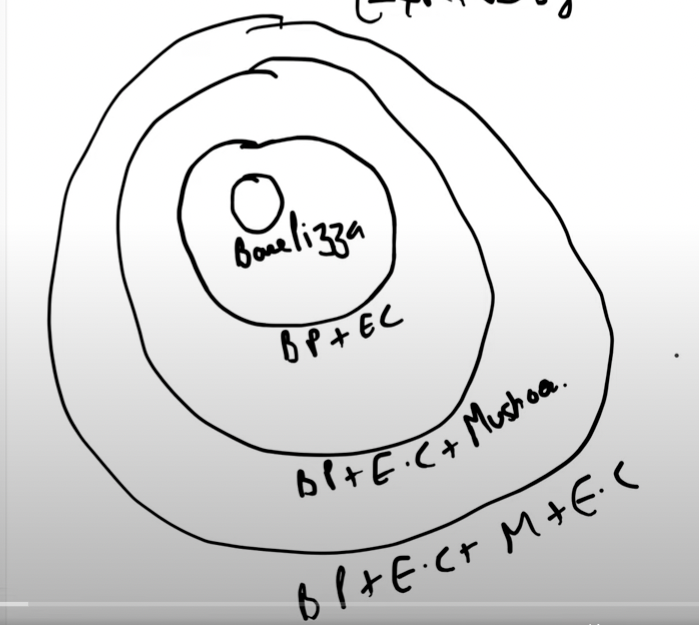 Base Pizza
BP + EC
BP + E.C + Mushroo.
BP + E.C + M + E.C